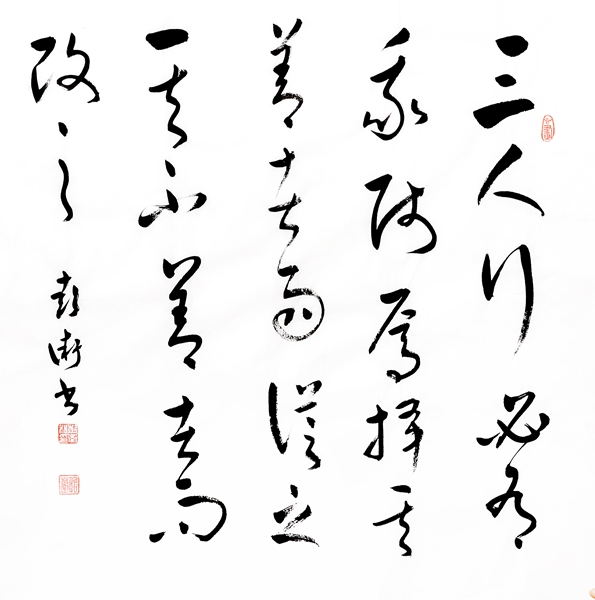 三人行必有
我師焉擇其
善者而從之
其不善者而
改之